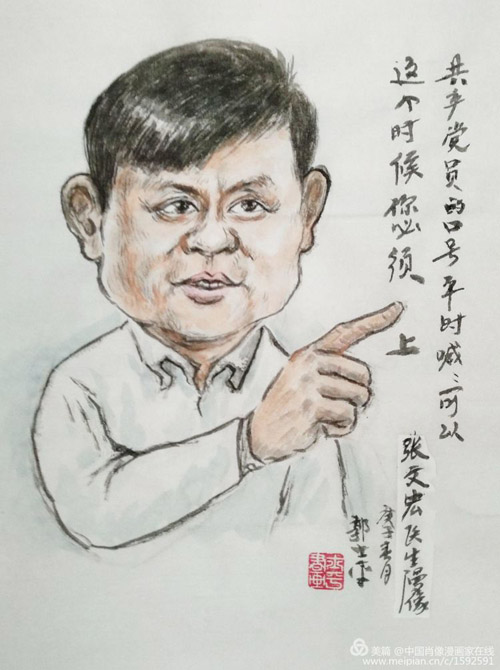 共产党员的口号平时喊々可以
这个时候你必须 上
张文宏医生漫像
庚子春月
美篇 @中国肖像漫画家在线
www.meipian.cn/c/1592591